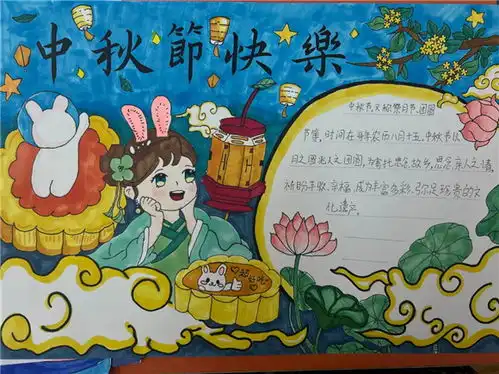 中秋節快樂
中秋节又称祭月节、团圆
节等，时间在每年农历八月十五。中秋节以
月之圆兆人之团圆，为寄托思念故乡，思念亲人之情，
祈盼丰收、幸福，成为丰富多彩、弥足珍贵的文
化遗产。